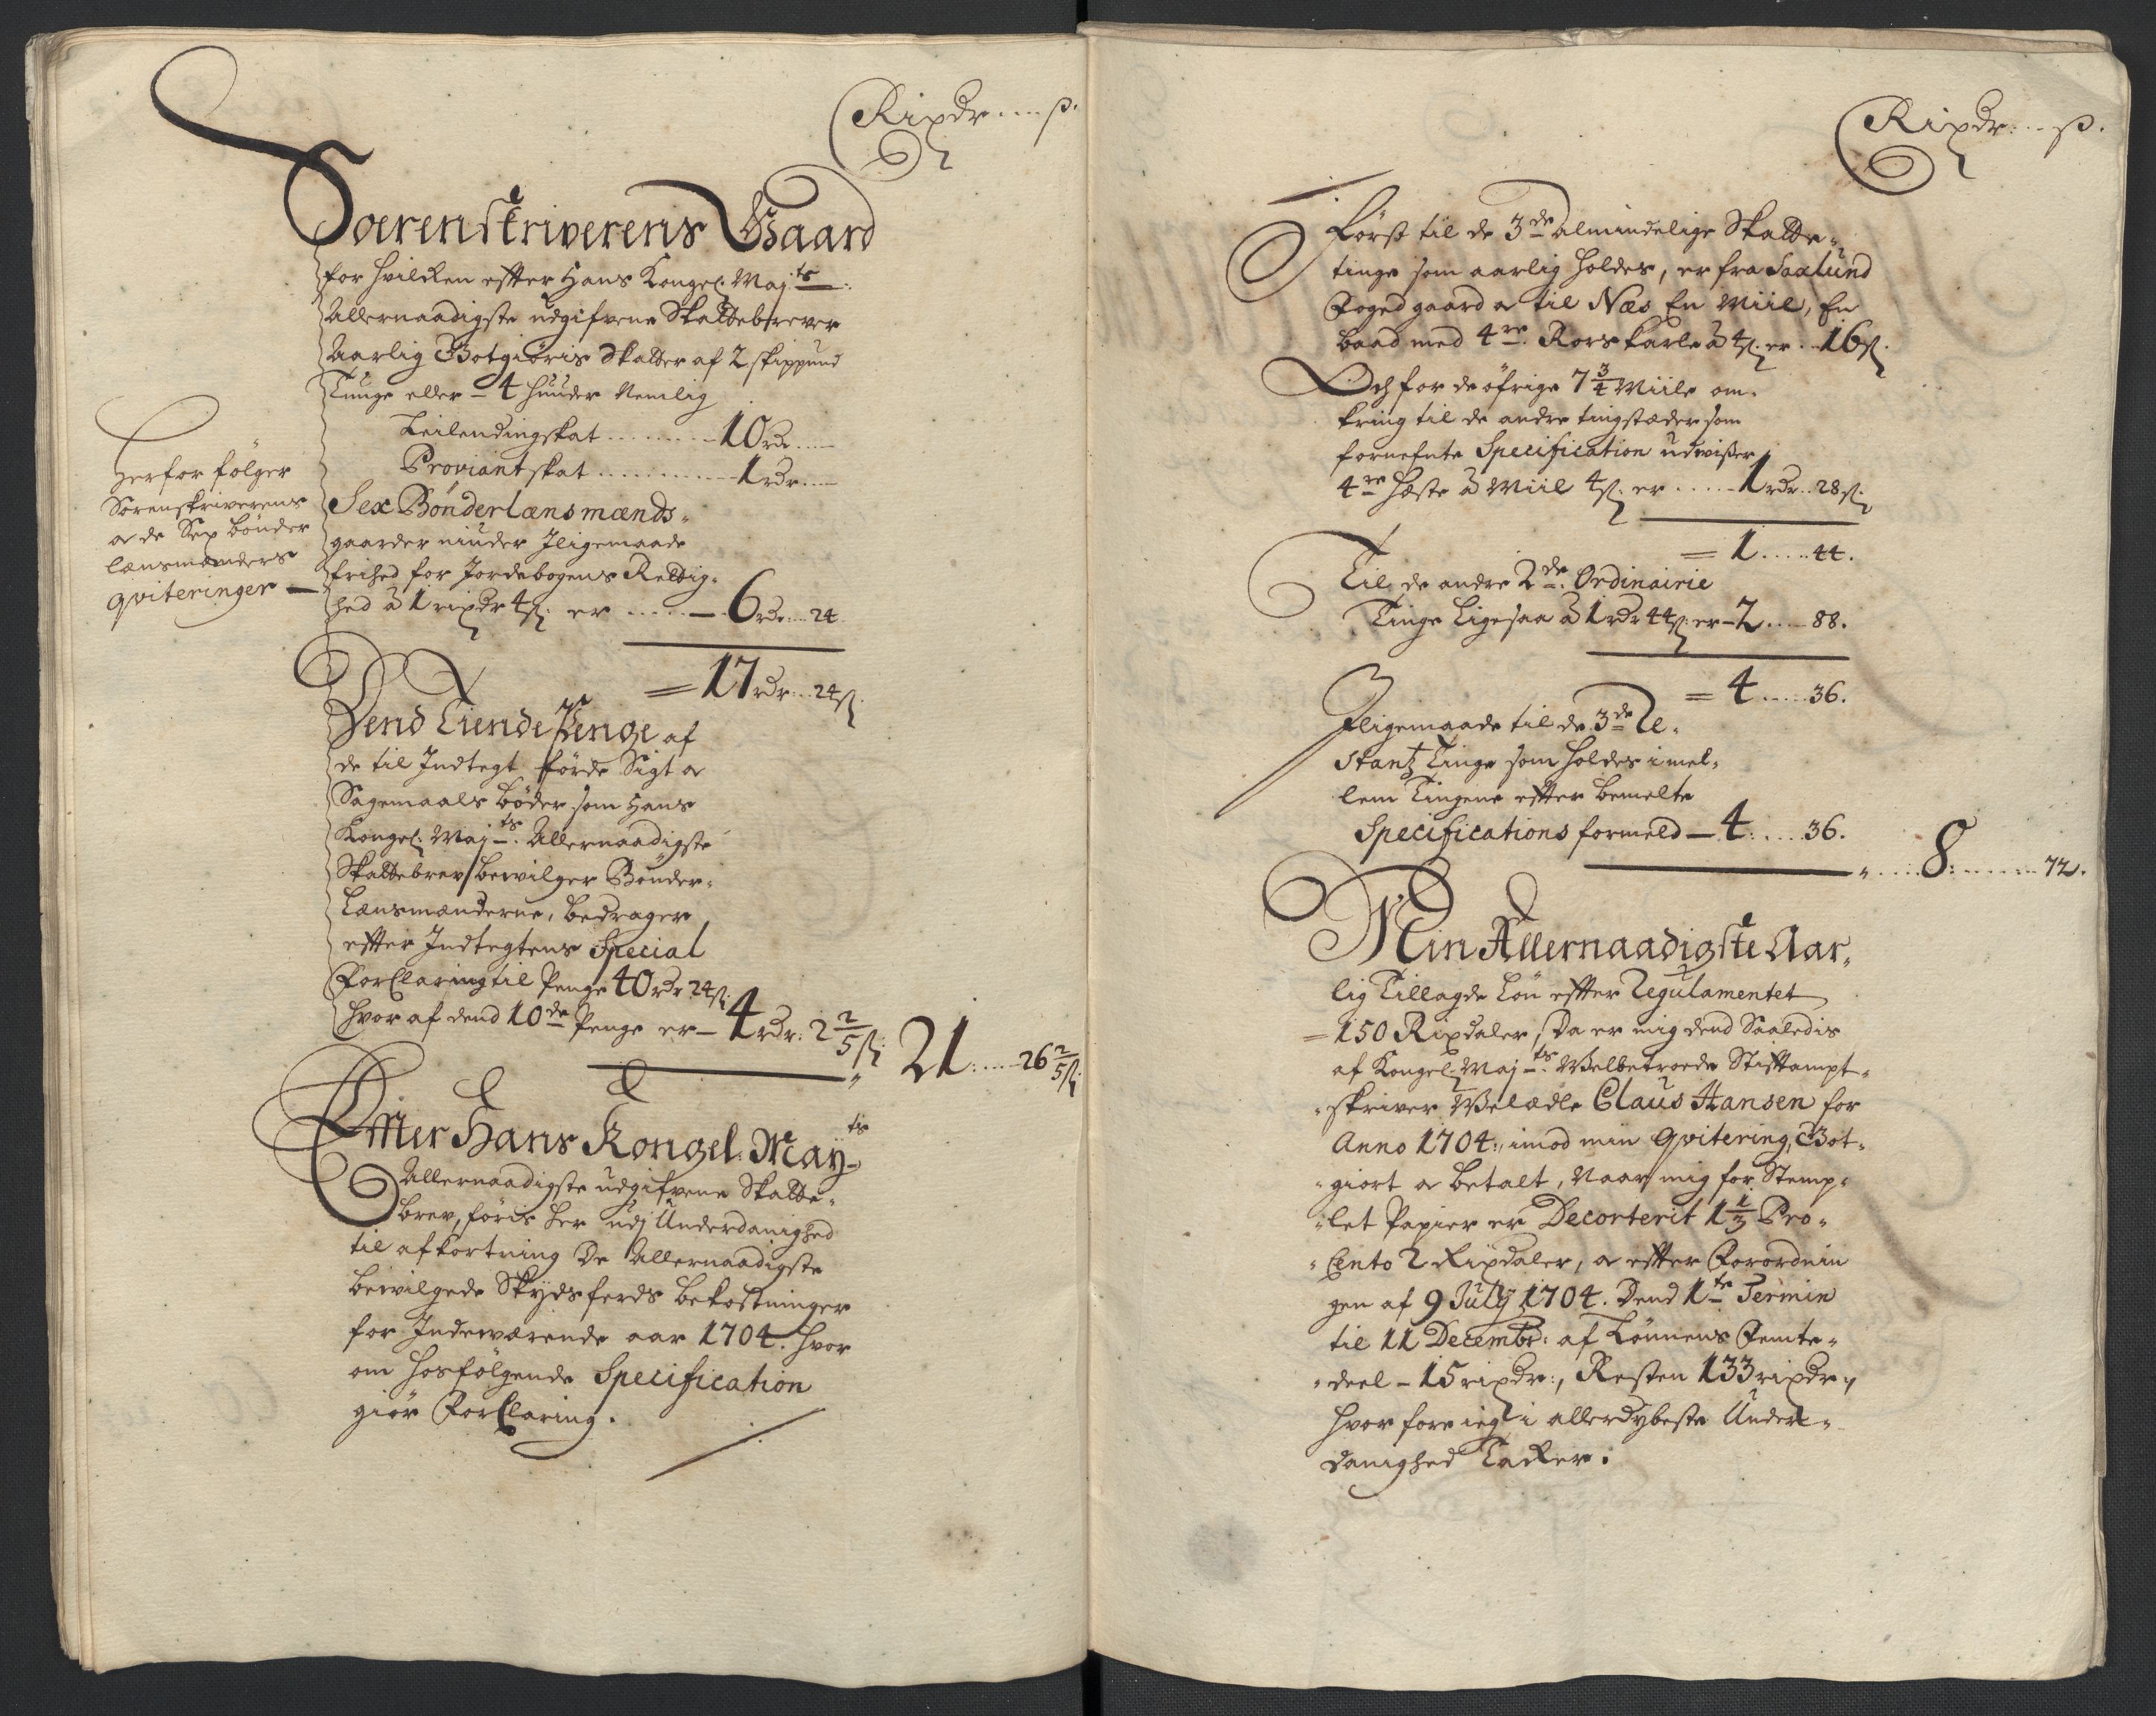 Ripdr....ß.
Soerenskriverens Gaard
for hvilcken effter Hans Kongel. Maj:ts
Allernaadigste udgifvene Skattebrever
Aarlig Botgiöris Skatter af 2 skippund
Tunge eller - 4 huuder Nemlig
Leilendingskat ......... 10 rdr....
Proviantskat ............ 1 rdr....
Sex Bönderlænsmænds-
gaarder niuder Jligemaade
frihed for Jordebogens Rettig-
hed à 1 ripdr 4 ß: er ...... 6 rdr... 24
Herfor fölger
Sörenskriverens
oc de Sex bönder
lænsmænders
qviteringer —
= 17 rdr... 24 ß
Dend Tiende Penge af
de til Indtegt förde Sigt oc
Sagemaals böder som Hans
Kongel: Maj:ts Allernaadigste
Skattebrev bevilger Bönder-
Lænsmænderne, bedrager
effter Indtegtens Special
Forclaring til Penge 40 rdr 24 ß:
Hvor af dend 10de Penge er - 4 rdr: 2 2/5 ß: 21.....26 2/5 ß:
Effter Hans Kongel: May:ts
Allernaadigste udgifvene Skatte-
brev, föris her udj Underdanighed
til afkortning De Allernaadigste
bevilgede Skydsferds bekostninger
for Indeværende aar 1704. hvor
om hosfölgende Specification
giör Forclaring.
Ripdr....ß.
Först til de 3de almindelige Skatte-
tinge som aarlig holdes, er fra Saxlund
Fogedgaard oc til Næs En Miil, En
baad med 4re Rorskarle à 4 ß. er .. 16 ß.
Och for de öfrige 7 3/4 Miile om-
kring til de andre tingstæder som
fornefnte Specification udviszer
4re Hæste à Miil 4 ß. er ..... 1 rdr. 28 ß.
= 1.....44.
Til de andre 2de Ordinairie
Tinge Ligesaa à 1 rdr 44 ß: er - 2.....88.
= 4.....36.
Jligemaade til de 3de Re-
stantz Tinge som holdes imel-
lem Tingene effter bemelte
Specifications formeld — 4.....36.
"....8:.......72.
Min Allernaadigste Aar-
lig Tillagde Lön effter Regulamentet
= 150 Ripdaler, Da er mig dend Saaledis
af Kongel: Maj:ts Welbetroede Stiftampt-
skriver Welædle Claus Hansen for
Anno 1704:, imod min Qvitering, Bot-
giort oc betalt, Naar mig for Stemp-
let Papier er Decorterit 1 1/3 Pro-
Cento 2 Ripdaler, oc effter Forordnin
gen af 9 July 1704. Dend 1te Termin
til 11 Decembr: af Lönnens Femte-
deel - 15 ripdr:, Resten 133 ripdr.,
hvor fore ieg i allerdybeste Under-
danighed Tacker: